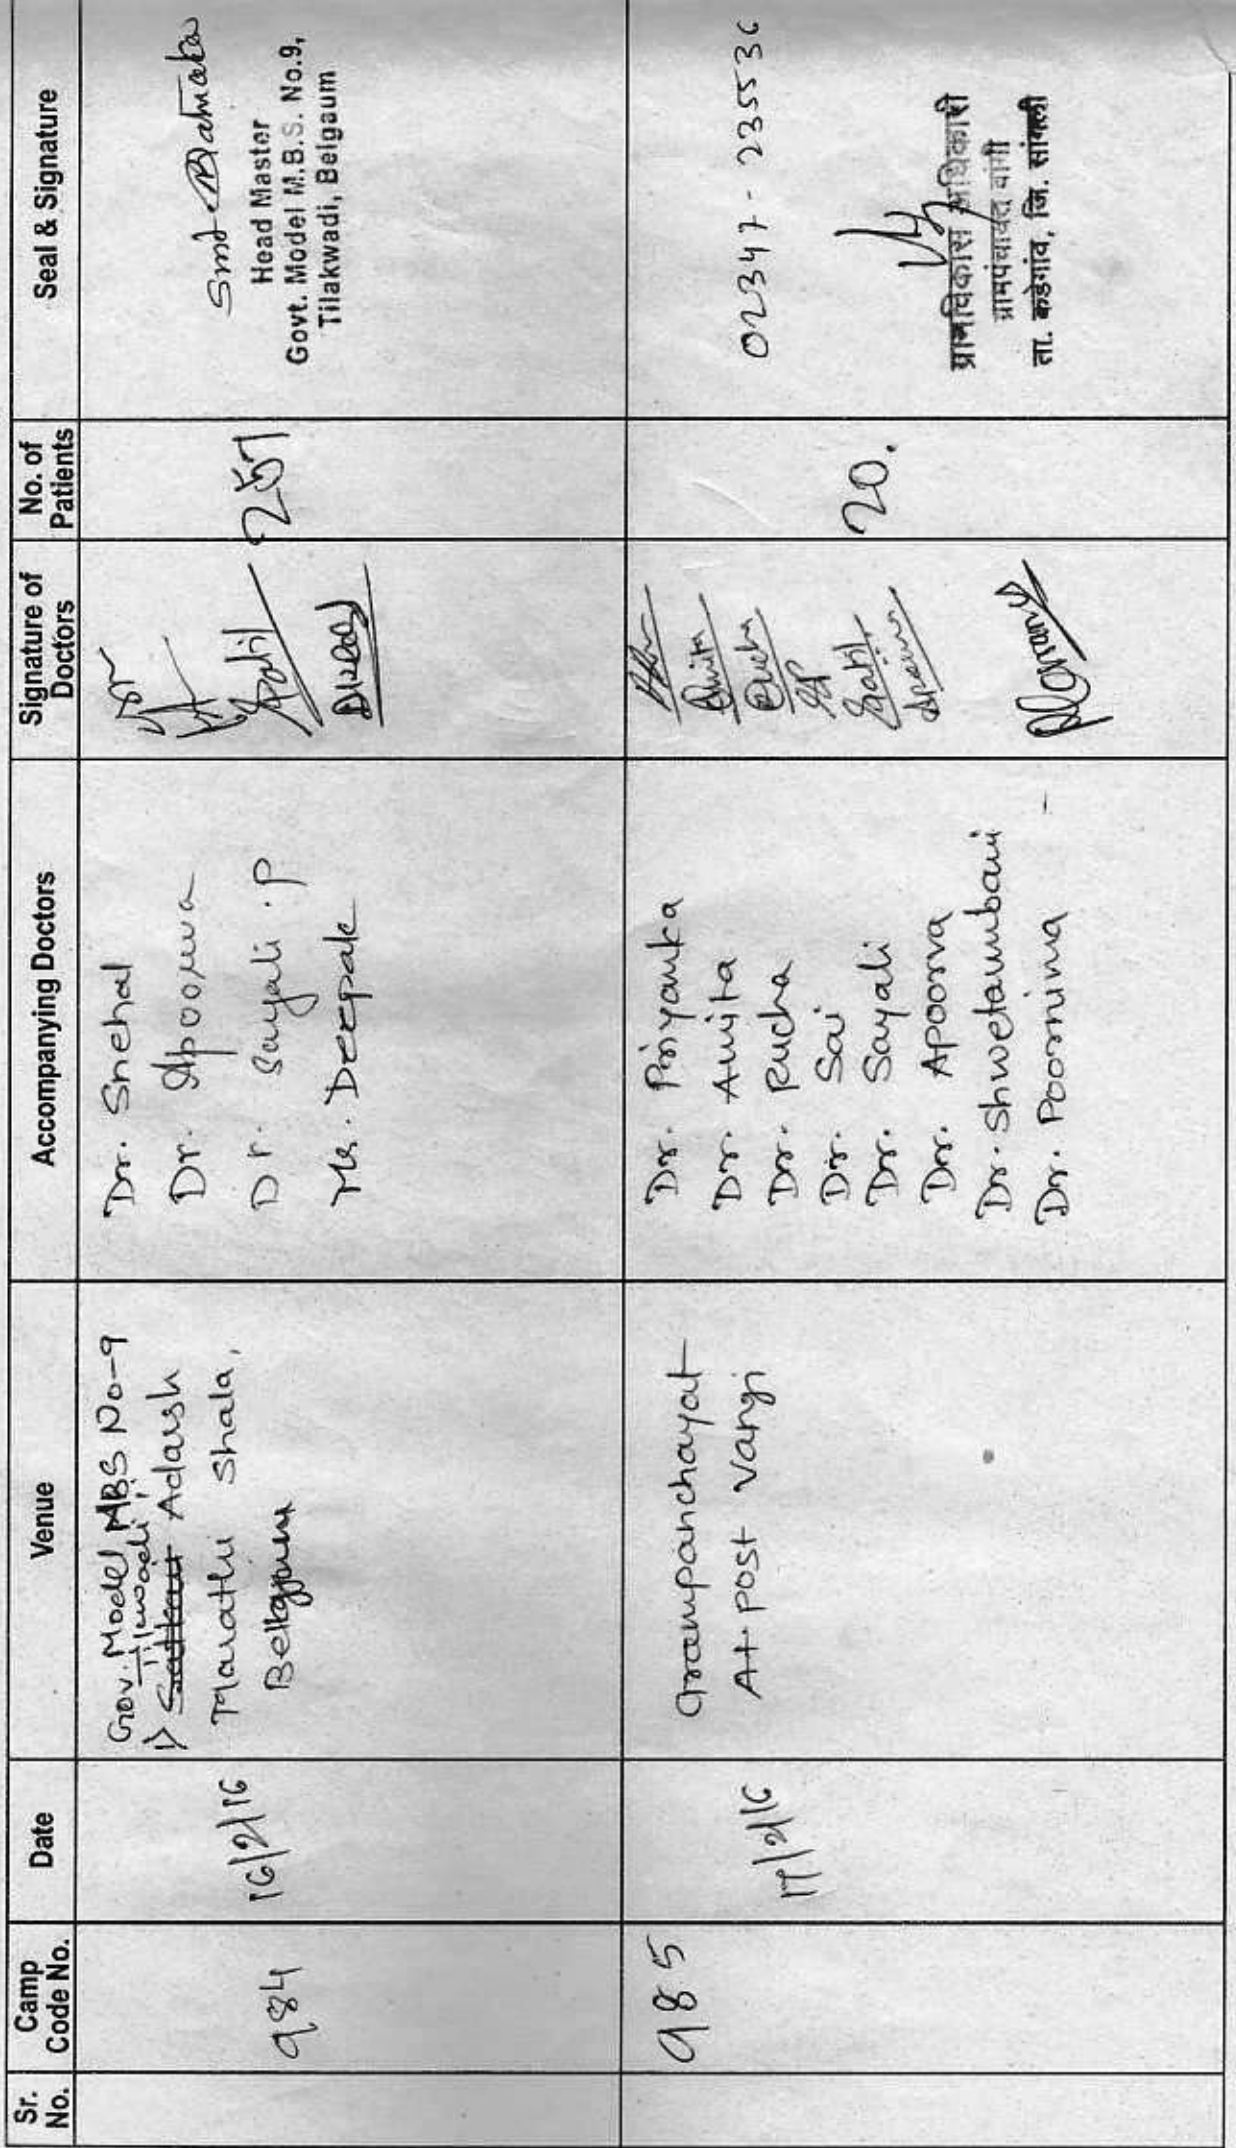 Sr. No.
Camp Code No.
Date
Venue
Accompanying Doctors
Signature of Doctors
No. of Patients
Seal & Signature
984
16/2/16
Gov. Model MBS No-9
Tilawadi,
1) Adarsh
Marathi Shala,
Belgaum
Dr. Snehal
Dr. Apoorva
Dr. Sayali .P
Mr. Deepak
257
Smt
Head Master
Govt. Model M.B.S. No.9,
Tilakwadi, Belgaum
985
17/2/16
Grampanchayat
At post Vangi
Dr. Priyanka
Dr. Amita
Dr. Rucha
Dr. Sai
Dr. Sayali
Dr. Apoorva
Dr. Shwetambari
Dr. Poornima -
Amita
Rucha
20.
02347 - 235536
ग्रामविकास अधिकारी
ग्रामपंचायत वांगी
ता. कडेगांव, जि. सांगली